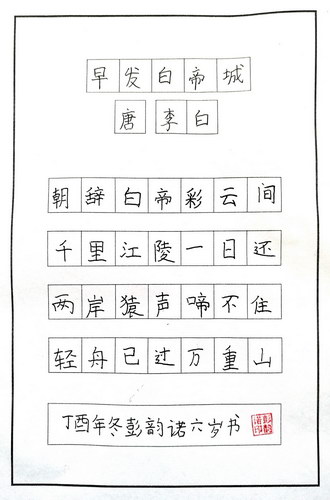 早发白帝城
唐 李白
朝辞白帝彩云间
千里江陵一日还
两岸猿声啼不住
轻舟已过万重山
丁酉年冬彭韵诺六岁书